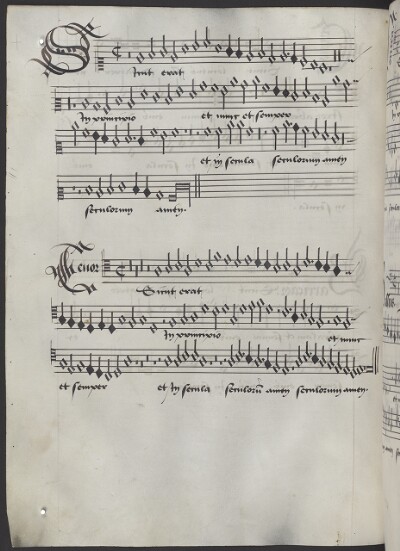 Sicut erat
In principio et nunc et semper
et in secula seculorum amen
seculorum amen.
Tenor
Sicut erat
In principio et nunc
et semper et In secula seculorū amen seculorum amen.